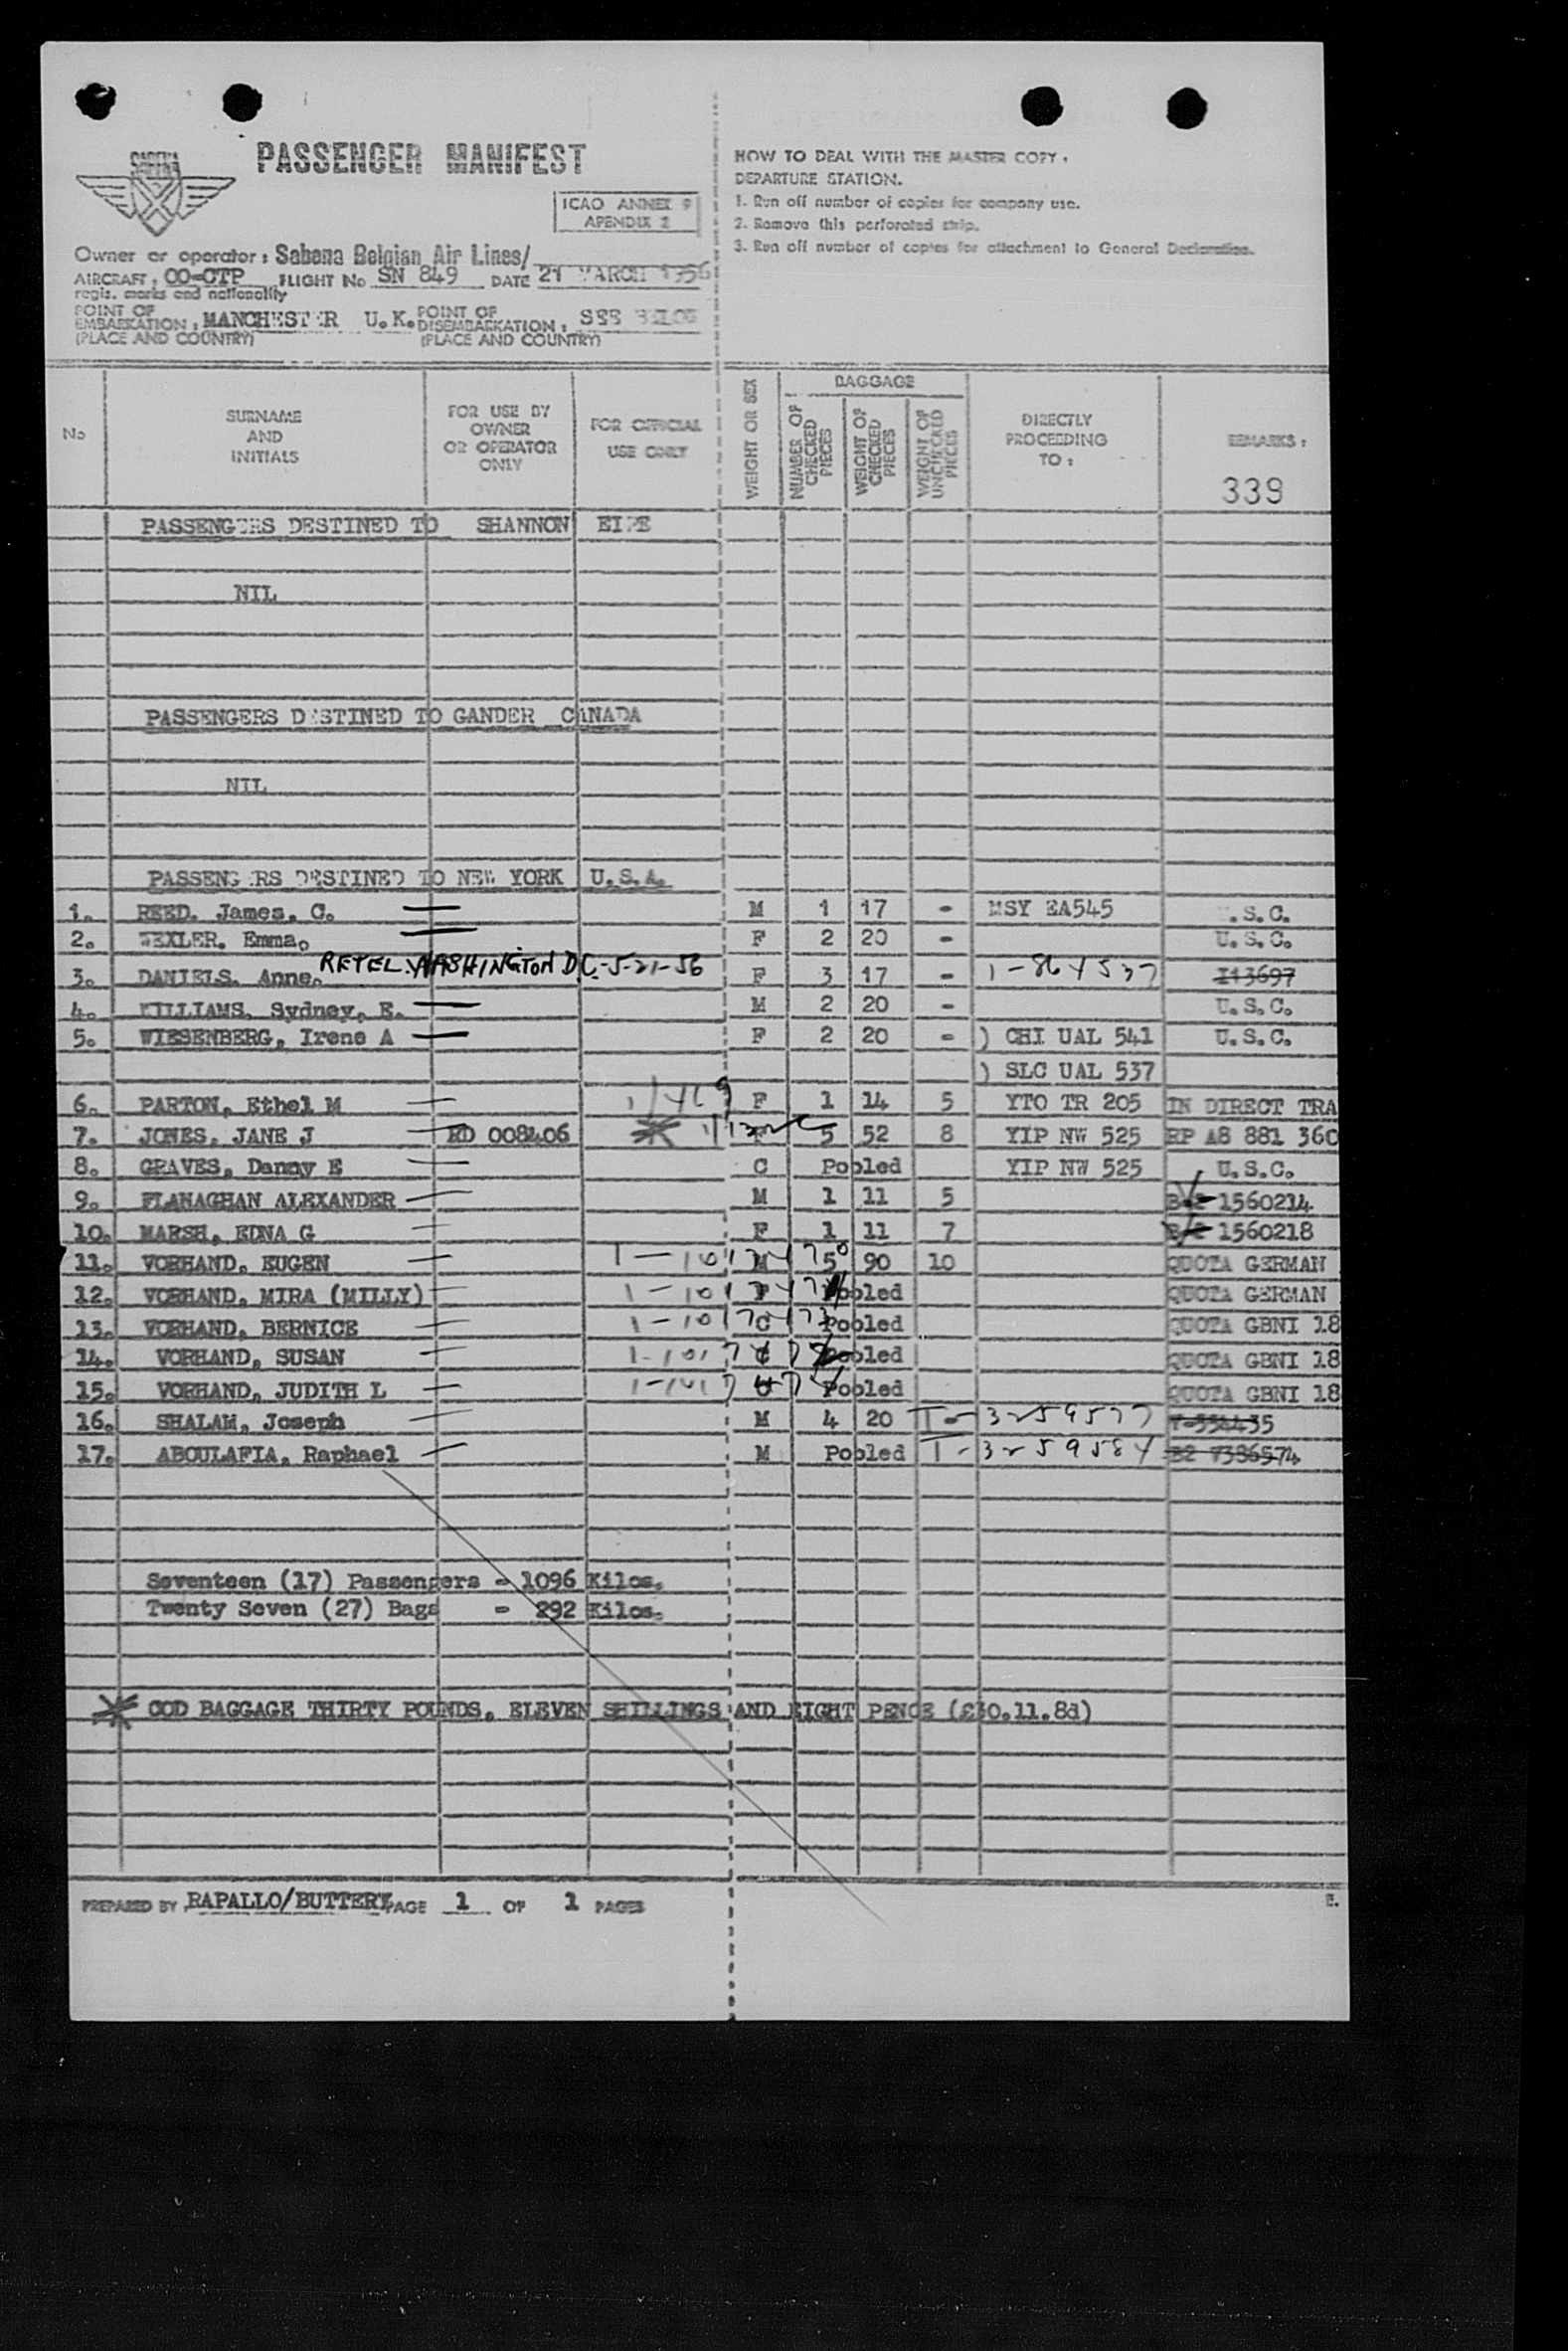 PASSENGER MANIFEST
SABENA
ICAO ANNEX 9
APENDIX 2
Owner or operator : Sabena Belgian Air Lines/
AIRCRAFT : OO-CTP FLIGHT No SN 849 DATE 21 MARCH 1956
regis. marks and nationality
POINT OF EMBARKATION : MANCHESTER U.K. POINT OF DISEMBARKATION : SEE BELOW
(PLACE AND COUNTRY) (PLACE AND COUNTRY)
HOW TO DEAL WITH THE MASTER COPY :
DEPARTURE STATION.
1. Run off number of copies for company use.
2. Remove this perforated strip.
3. Run off number of copies for attachment to General Declaration.
No
SURNAME AND INITIALS
FOR USE BY OWNER OR OPERATOR ONLY
FOR OFFICIAL USE ONLY
WEIGHT OR SEX
BAGGAGE
NUMBER OF CHECKED PIECES
WEIGHT OF CHECKED PIECES
WEIGHT OF UNCHECKED PIECES
DIRECTLY PROCEEDING TO :
REMARKS :
339
PASSENGERS DESTINED TO SHANNON EIRE
NIL
PASSENGERS DESTINED TO GANDER CANADA
NIL
PASSENGERS DESTINED TO NEW YORK U.S.A.
1. REED. James. C. M 1 17 - MSY EA545 U.S.C.
2. WEXLER. Emma. F 2 20 - U.S.C.
RETEL. WASHINGTON D.C.-5-21-56
3. DANIELS. Anne. F 3 17 - 1-864537 I13697
4. WILLIAMS, Sydney, E. M 2 20 - U.S.C.
5. WIESENBERG, Irene A F 2 20 - ) CHI UAL 541 U.S.C.
) SLC UAL 537
6. PARTON, Ethel M F 1 14 5 YTO TR 205 IN DIRECT TRA
7. JONES, JANE J ED 008406 5 52 8 YIP NW 525 RP A8 881 360
8. GRAVES, Danny E C Pooled YIP NW 525 U.S.C.
9. FLANAGHAN ALEXANDER M 1 11 5 1560214
10. MARSH, EDNA G F 1 11 7 1560218
11. VORHAND, EUGEN M 5 90 10 QUOTA GERMAN
12. VORHAND, MIRA (MILLY) Pooled QUOTA GERMAN
13. VORHAND, BERNICE C Pooled QUOTA GBNI 18
14. VORHAND, SUSAN Pooled QUOTA GBNI 18
15. VORHAND, JUDITH L Pooled QUOTA GBNI 18
16. SHALAM, Joseph M 4 20 T-3259577
17. ABOULAFIA, Raphael M Pooled T-3259584 B2 7386574
Seventeen (17) Passengers - 1096 Kilos.
Twenty Seven (27) Bags - 292 Kilos.
COD BAGGAGE THIRTY POUNDS, ELEVEN SHILLINGS AND EIGHT PENCE (£30.11.8d)
PREPARED BY RAPALLO/BUTTERY PAGE 1 OF 1 PAGES
E.